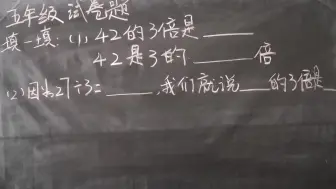 五年级试卷题
填一填:(1)42的3倍是____
42是3的____倍
(2)因为27÷3=____,我们就说__的3倍是_